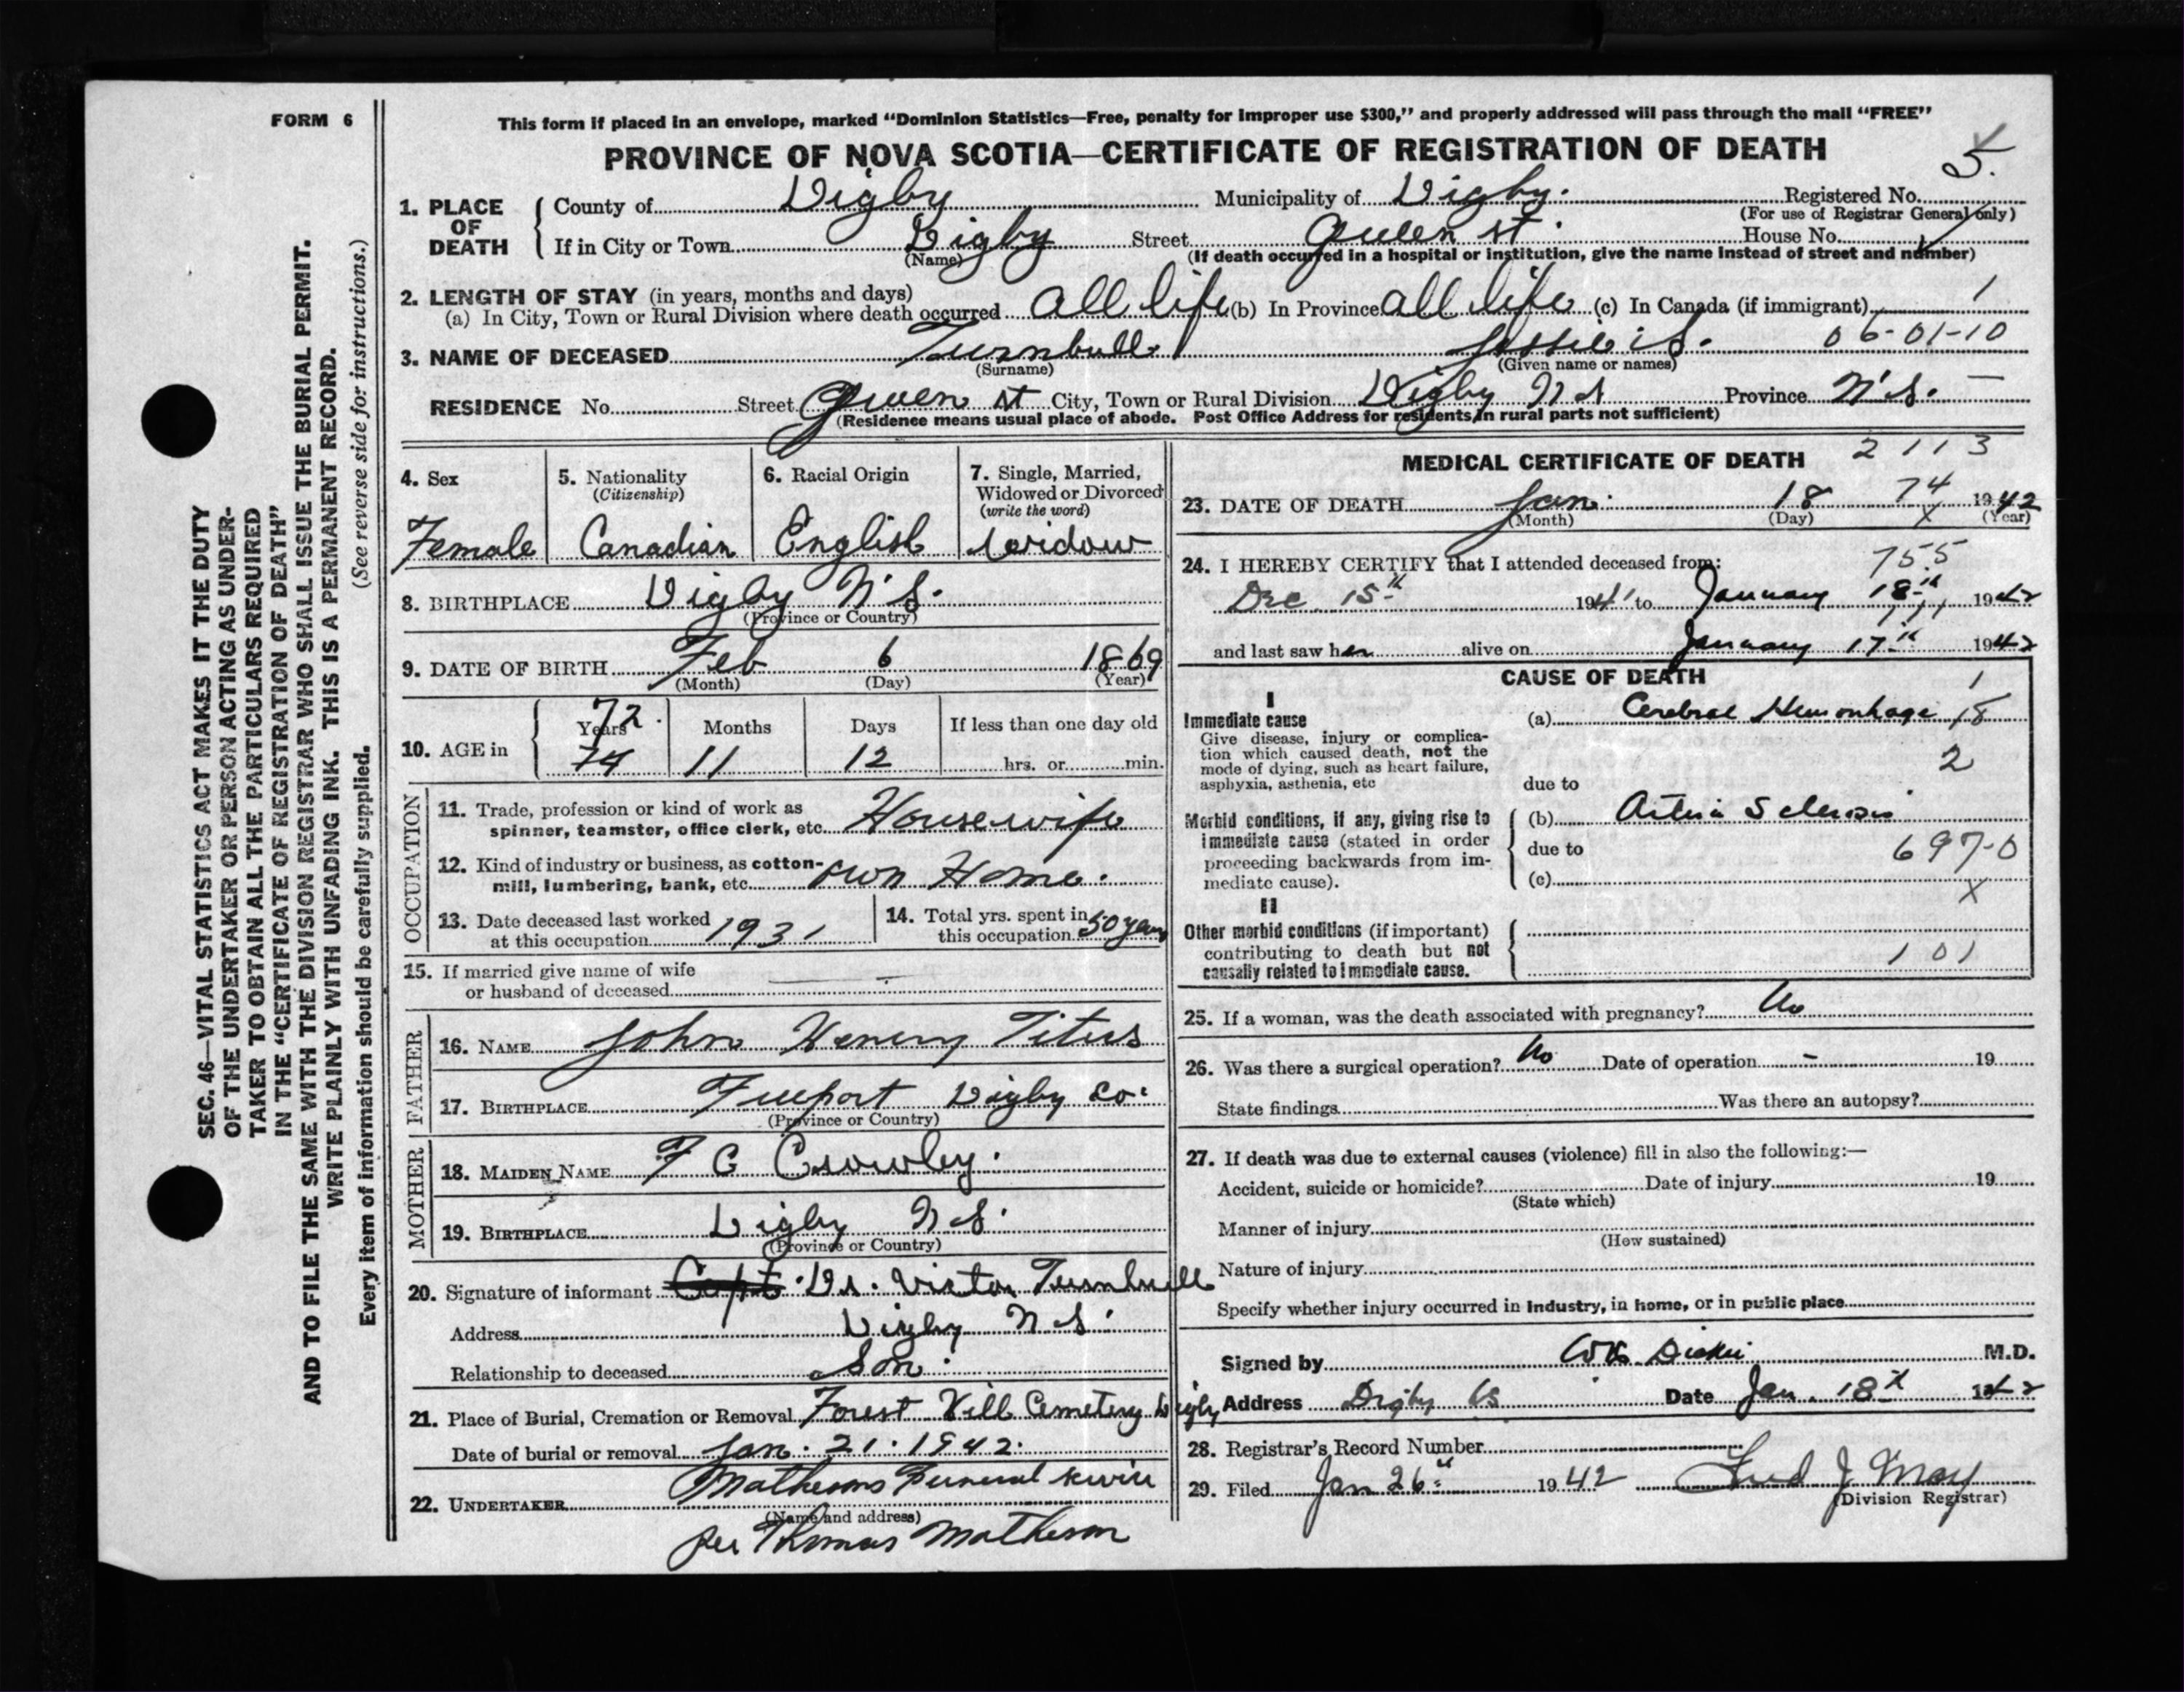 FORM 6
This form if placed in an envelope, marked "Dominion Statistics—Free, penalty for improper use $300," and properly addressed will pass through the mail "FREE"
PROVINCE OF NOVA SCOTIA—CERTIFICATE OF REGISTRATION OF DEATH
5.
1. PLACE OF DEATH
County of Digby Municipality of Digby. Registered No.
(For use of Registrar General only)
If in City or Town Digby Street Queen st. House No.
(Name) (If death occurred in a hospital or institution, give the name instead of street and number)
2. LENGTH OF STAY (in years, months and days)
(a) In City, Town or Rural Division where death occurred All life (b) In Province All life (c) In Canada (if immigrant) 1
3. NAME OF DECEASED Turnbull Jessie S. 06-01-10
(Surname) (Given name or names)
RESIDENCE No. Street Queen st City, Town or Rural Division Digby N S Province N.S. —
(Residence means usual place of abode. Post Office Address for residents in rural parts not sufficient)
4. Sex
Female
5. Nationality
(Citizenship)
Canadian
6. Racial Origin
English
7. Single, Married,
Widowed or Divorced
(write the word)
Widow
8. BIRTHPLACE Digby N.S.
(Province or Country)
9. DATE OF BIRTH Feb 6 1869
(Month) (Day) (Year)
10. AGE in
72.
Years Months Days If less than one day old
74 11 12 hrs. or min.
OCCUPATION
11. Trade, profession or kind of work as
spinner, teamster, office clerk, etc. Housewife
12. Kind of industry or business, as cotton-
mill, lumbering, bank, etc. own Home.
13. Date deceased last worked
at this occupation 1931
14. Total yrs. spent in
this occupation 50 years
15. If married give name of wife
or husband of deceased —
FATHER
16. NAME John Henery Titus
17. BIRTHPLACE Freeport Digby Co.
(Province or Country)
MOTHER
18. MAIDEN NAME F C Crowley.
19. BIRTHPLACE Digby N.S.
(Province or Country)
20. Signature of informant Capt. Dr. Victor Turnbull
Address Digby N S.
Relationship to deceased Son.
21. Place of Burial, Cremation or Removal Forest Hill Cemetery Digby
Date of burial or removal Jan. 21. 1942.
22. UNDERTAKER Mathesons Funeral Service
(Name and address)
per Thomas Matheson
MEDICAL CERTIFICATE OF DEATH 2113
23. DATE OF DEATH Jan. 18 74 1942
(Month) (Day) X (Year)
24. I HEREBY CERTIFY that I attended deceased from: 755
Dec 15th 1941 to January 18th 1942
and last saw her alive on January 17th 1942
CAUSE OF DEATH
1
I
Immediate cause
Give disease, injury or complica-
tion which caused death, not the
mode of dying, such as heart failure,
asphyxia, asthenia, etc
(a) Cerebral Hemorrhage 18
2
due to
Morbid conditions, if any, giving rise to
immediate cause (stated in order
proceeding backwards from im-
mediate cause).
(b) Arterio Sclerosis
due to 697-0
(c)
X
II
Other morbid conditions (if important)
contributing to death but not
causally related to immediate cause.
101
25. If a woman, was the death associated with pregnancy? No
26. Was there a surgical operation? No Date of operation – 19
State findings Was there an autopsy?
27. If death was due to external causes (violence) fill in also the following:—
Accident, suicide or homicide? Date of injury 19
(State which)
Manner of injury
(How sustained)
Nature of injury
Specify whether injury occurred in industry, in home, or in public place
Signed by M.D.
Address Digby NS Date Jan. 18th 1942
28. Registrar's Record Number
29. Filed Jan 26th 1942 Fred J. May
(Division Registrar)
SEC. 46—VITAL STATISTICS ACT MAKES IT THE DUTY
OF THE UNDERTAKER OR PERSON ACTING AS UNDER-
TAKER TO OBTAIN ALL THE PARTICULARS REQUIRED
IN THE "CERTIFICATE OF REGISTRATION OF DEATH"
AND TO FILE THE SAME WITH THE DIVISION REGISTRAR WHO SHALL ISSUE THE BURIAL PERMIT.
WRITE PLAINLY WITH UNFADING INK. THIS IS A PERMANENT RECORD.
Every item of information should be carefully supplied. (See reverse side for instructions.)